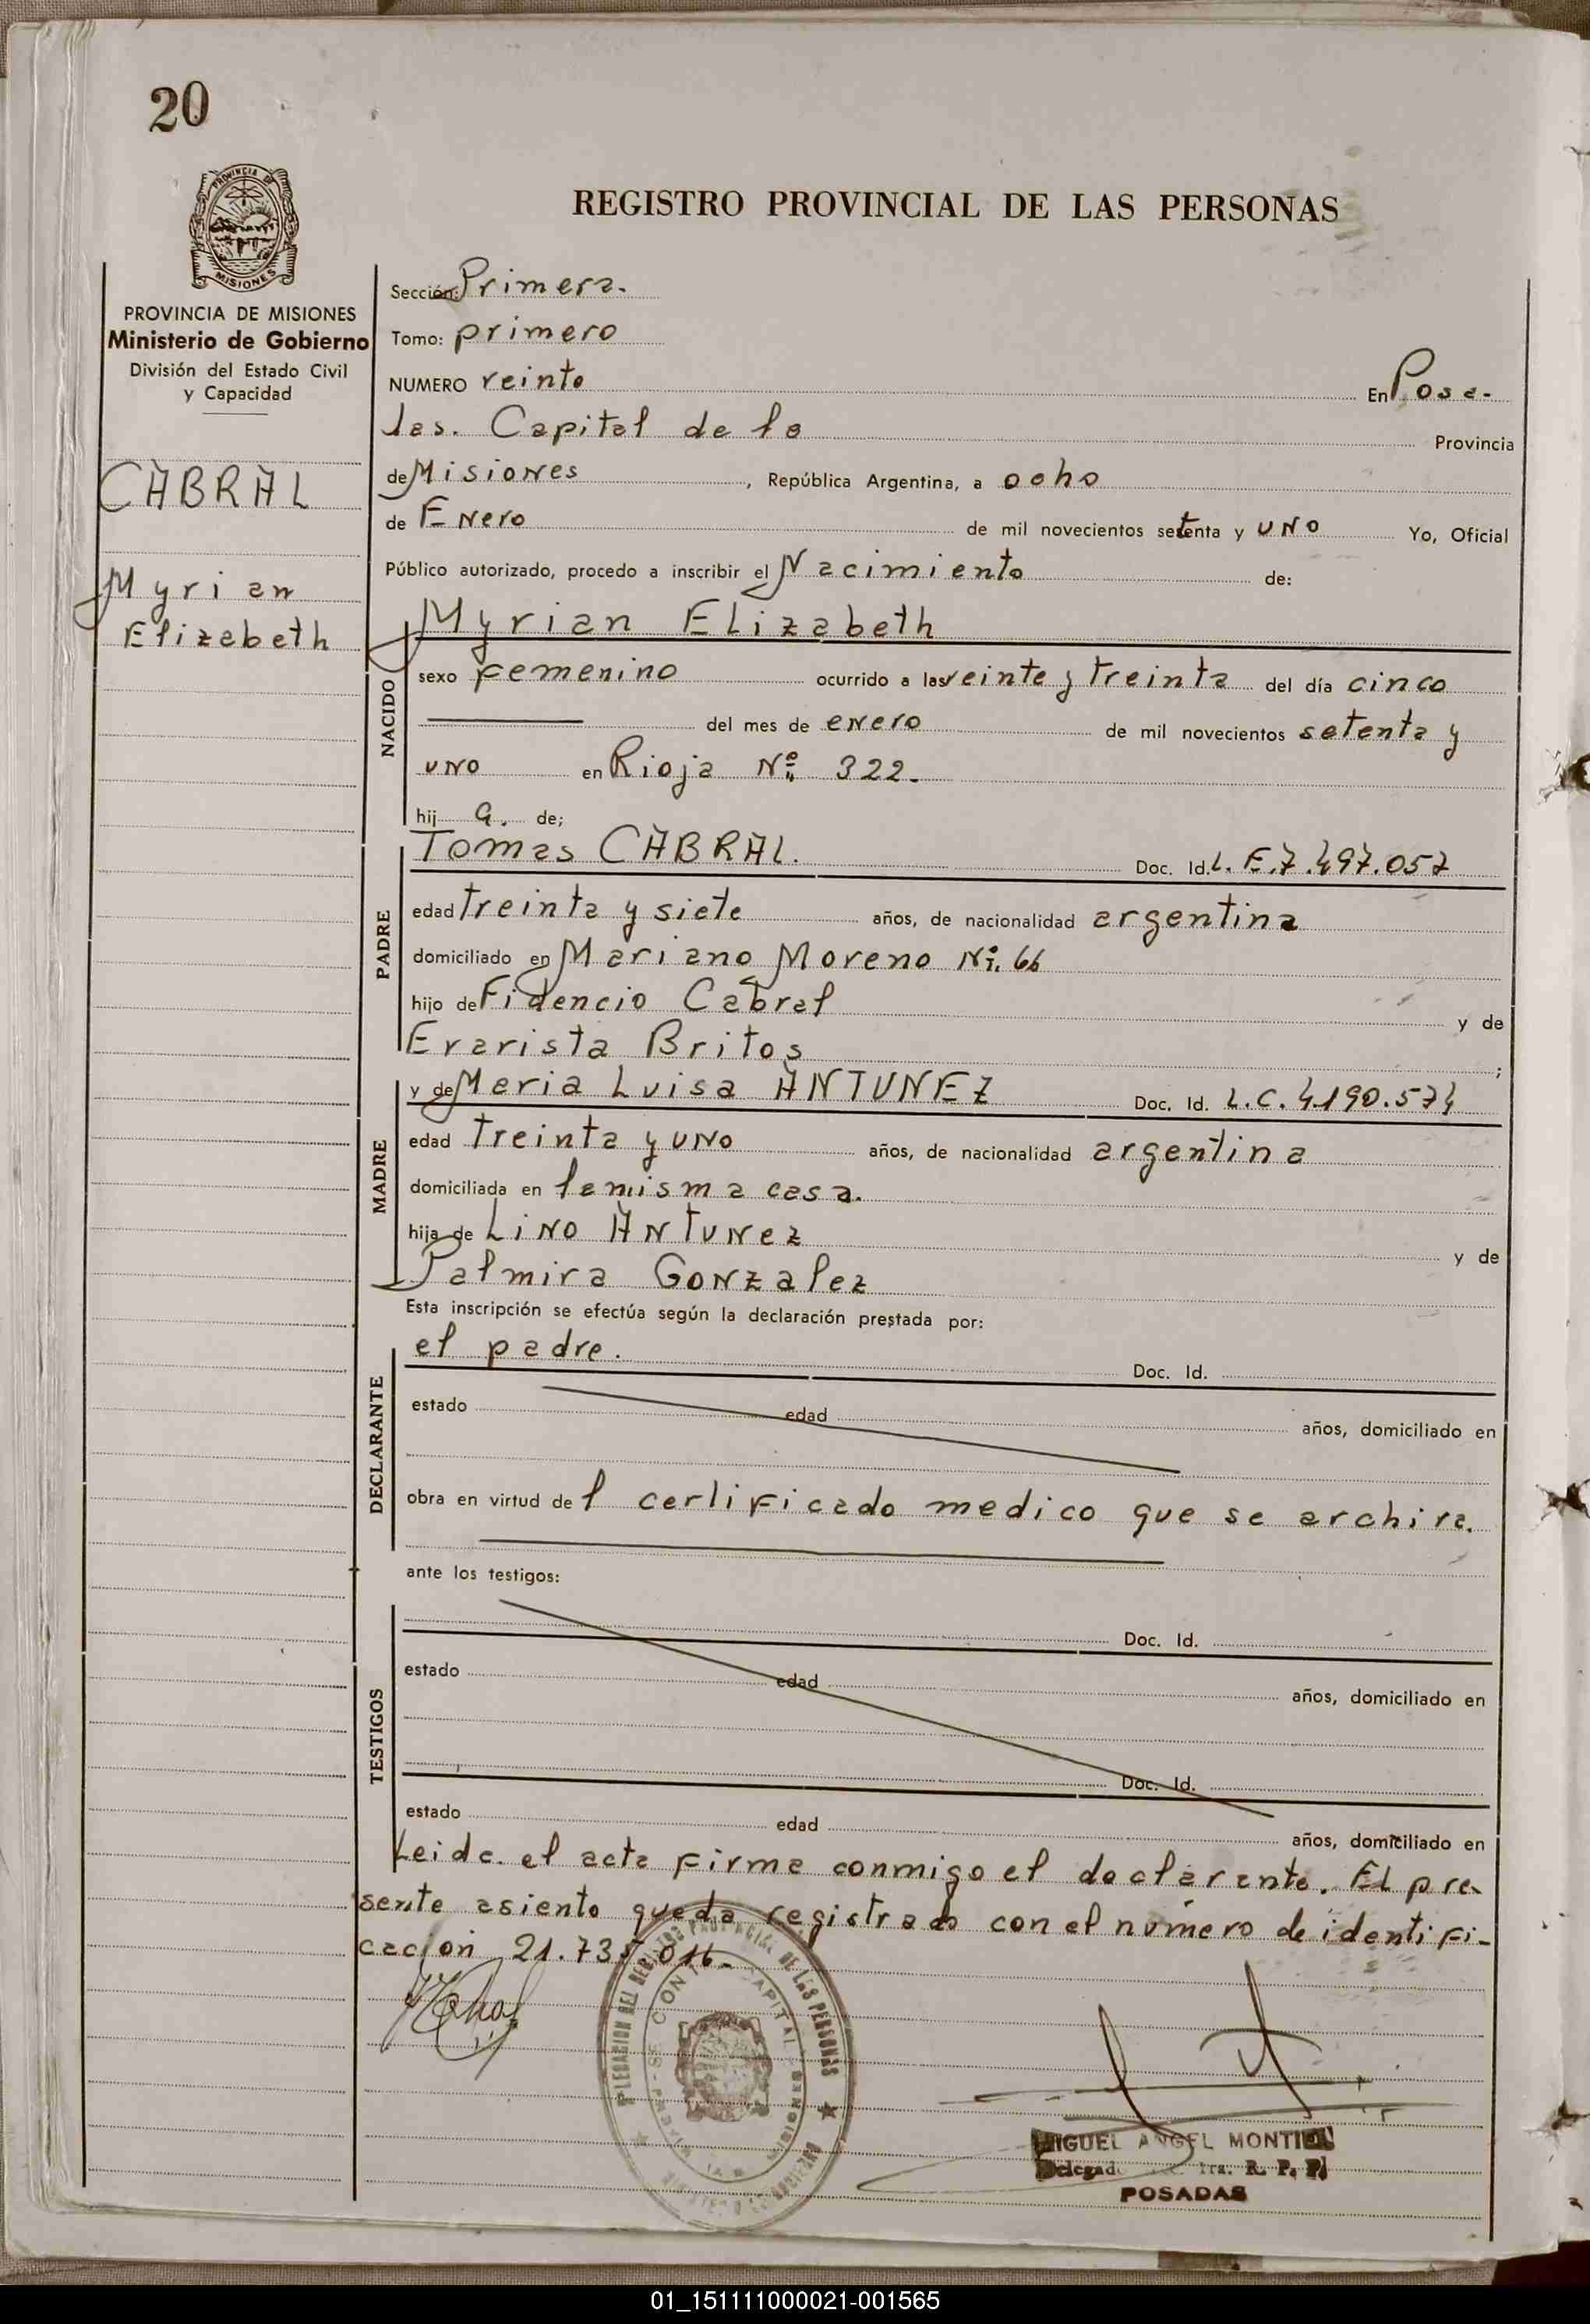 20
PROVINCIA DE
MISIONES
REGISTRO PROVINCIAL DE LAS PERSONAS
PROVINCIA DE MISIONES
Ministerio de Gobierno
División del Estado Civil
y Capacidad
CABRAL
Myrian
Elizabeth
Sección: Primera.
Tomo: primero
NUMERO veinte En Posa-
das. Capital de la Provincia
de Misiones, República Argentina, a ocho
de Enero de mil novecientos setenta y uno Yo, Oficial
Público autorizado, procedo a inscribir el Nacimiento de:
Myrian Elizabeth
NACIDO
sexo femenino ocurrido a las veinte y treinta del día cinco
del mes de enero de mil novecientos setenta y
uno en Rioja Nº 322.
hij a. de;
PADRE
Tomas CABRAL. Doc. Id. L.E.7.497.057
edad treinta y siete años, de nacionalidad argentina
domiciliado en Mariano Moreno Nº. 66
hijo de Fidencio Cabral y de
Evarista Britos ;
MADRE
y de Maria Luisa ANTUNEZ Doc. Id. L.C.4.190.574
edad treinta y uno años, de nacionalidad argentina
domiciliada en la misma casa.
hija de Lino Antunez y de
Palmira Gonzalez
Esta inscripción se efectúa según la declaración prestada por:
DECLARANTE
el padre. Doc. Id.
estado edad años, domiciliado en
obra en virtud del certificado medico que se archiva.
ante los testigos:
TESTIGOS
Doc. Id.
estado edad años, domiciliado en
Doc. Id.
estado edad años, domiciliado en
Leida el acta firma conmigo el declarante. El pre-
sente asiento queda registrado con el número de identifi-
cación 21.735.016.
DEL REGISTRO PROVINCIAL DE LAS PERSONAS
CAPITAL
MIGUEL ANGEL MONTIEL
Delegad R. P. P.
POSADAS
01_151111000021-001565